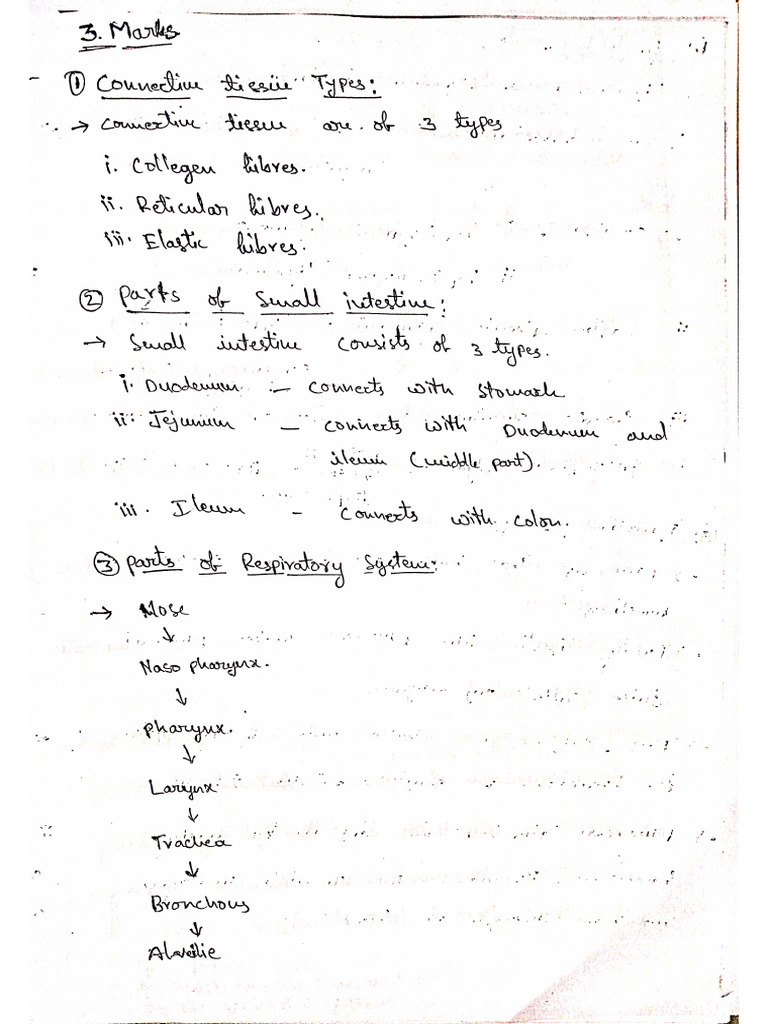 3. Marks
① Connective tissue Types:
→ connective tissue are of 3 types
i. Collegen fibres.
ii. Reticular fibres.
iii. Elastic fibres.
② Parts of Small intestine:
→ Small intestine consists of 3 types.
i. Duodenum – connects with stomach
ii. Jejunum – connects with Duodenum and
ileum (middle part).
iii. Ileum – Connects with colon.
③ parts of Respiratory System:
→ Nose
↓
Naso pharynx.
↓
pharynx.
↓
Larynx
↓
Trachea
↓
Bronchous
↓